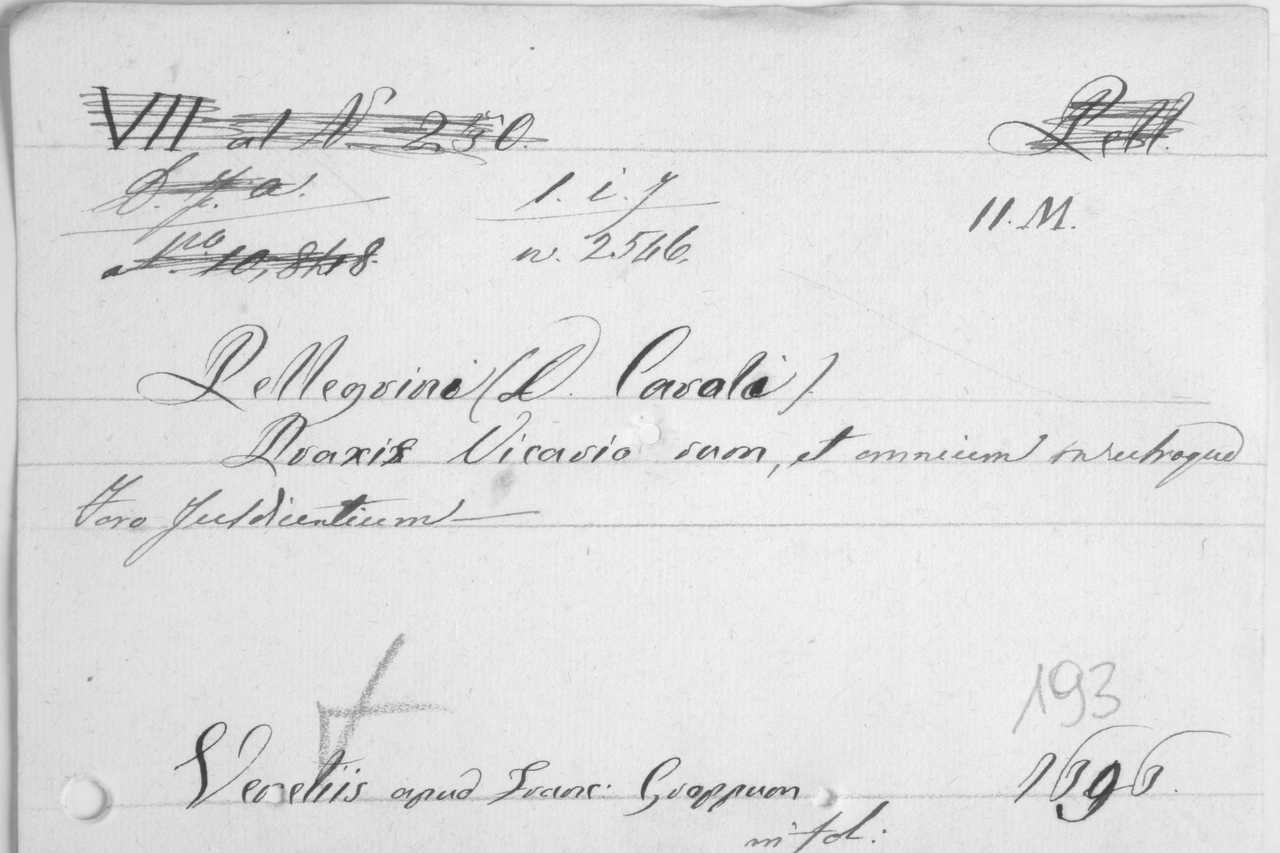 VII al N. 250. Pell.
D. f. a. 1. i. 7 11. M.
al No. 10,848. n. 2546.
Pellegrini (D. Caroli).
Praxis Vicario rum, et omnium in utroque
Foro Jusdicentium
193
Venetiis apud Franc: Groppum 1696.
in fol: